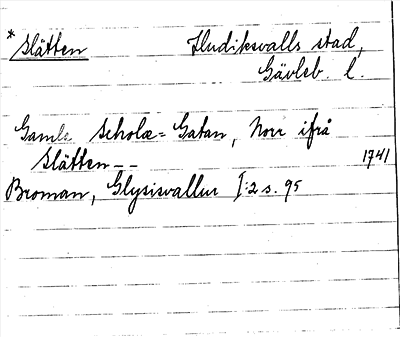 *Slätten Hudiksvalls stad,
Gävleb. l.
Gamle Schole=Gatan, Norr ifrå
Slätten-- 1741
Broman, Glysisvallur I:2 s. 95